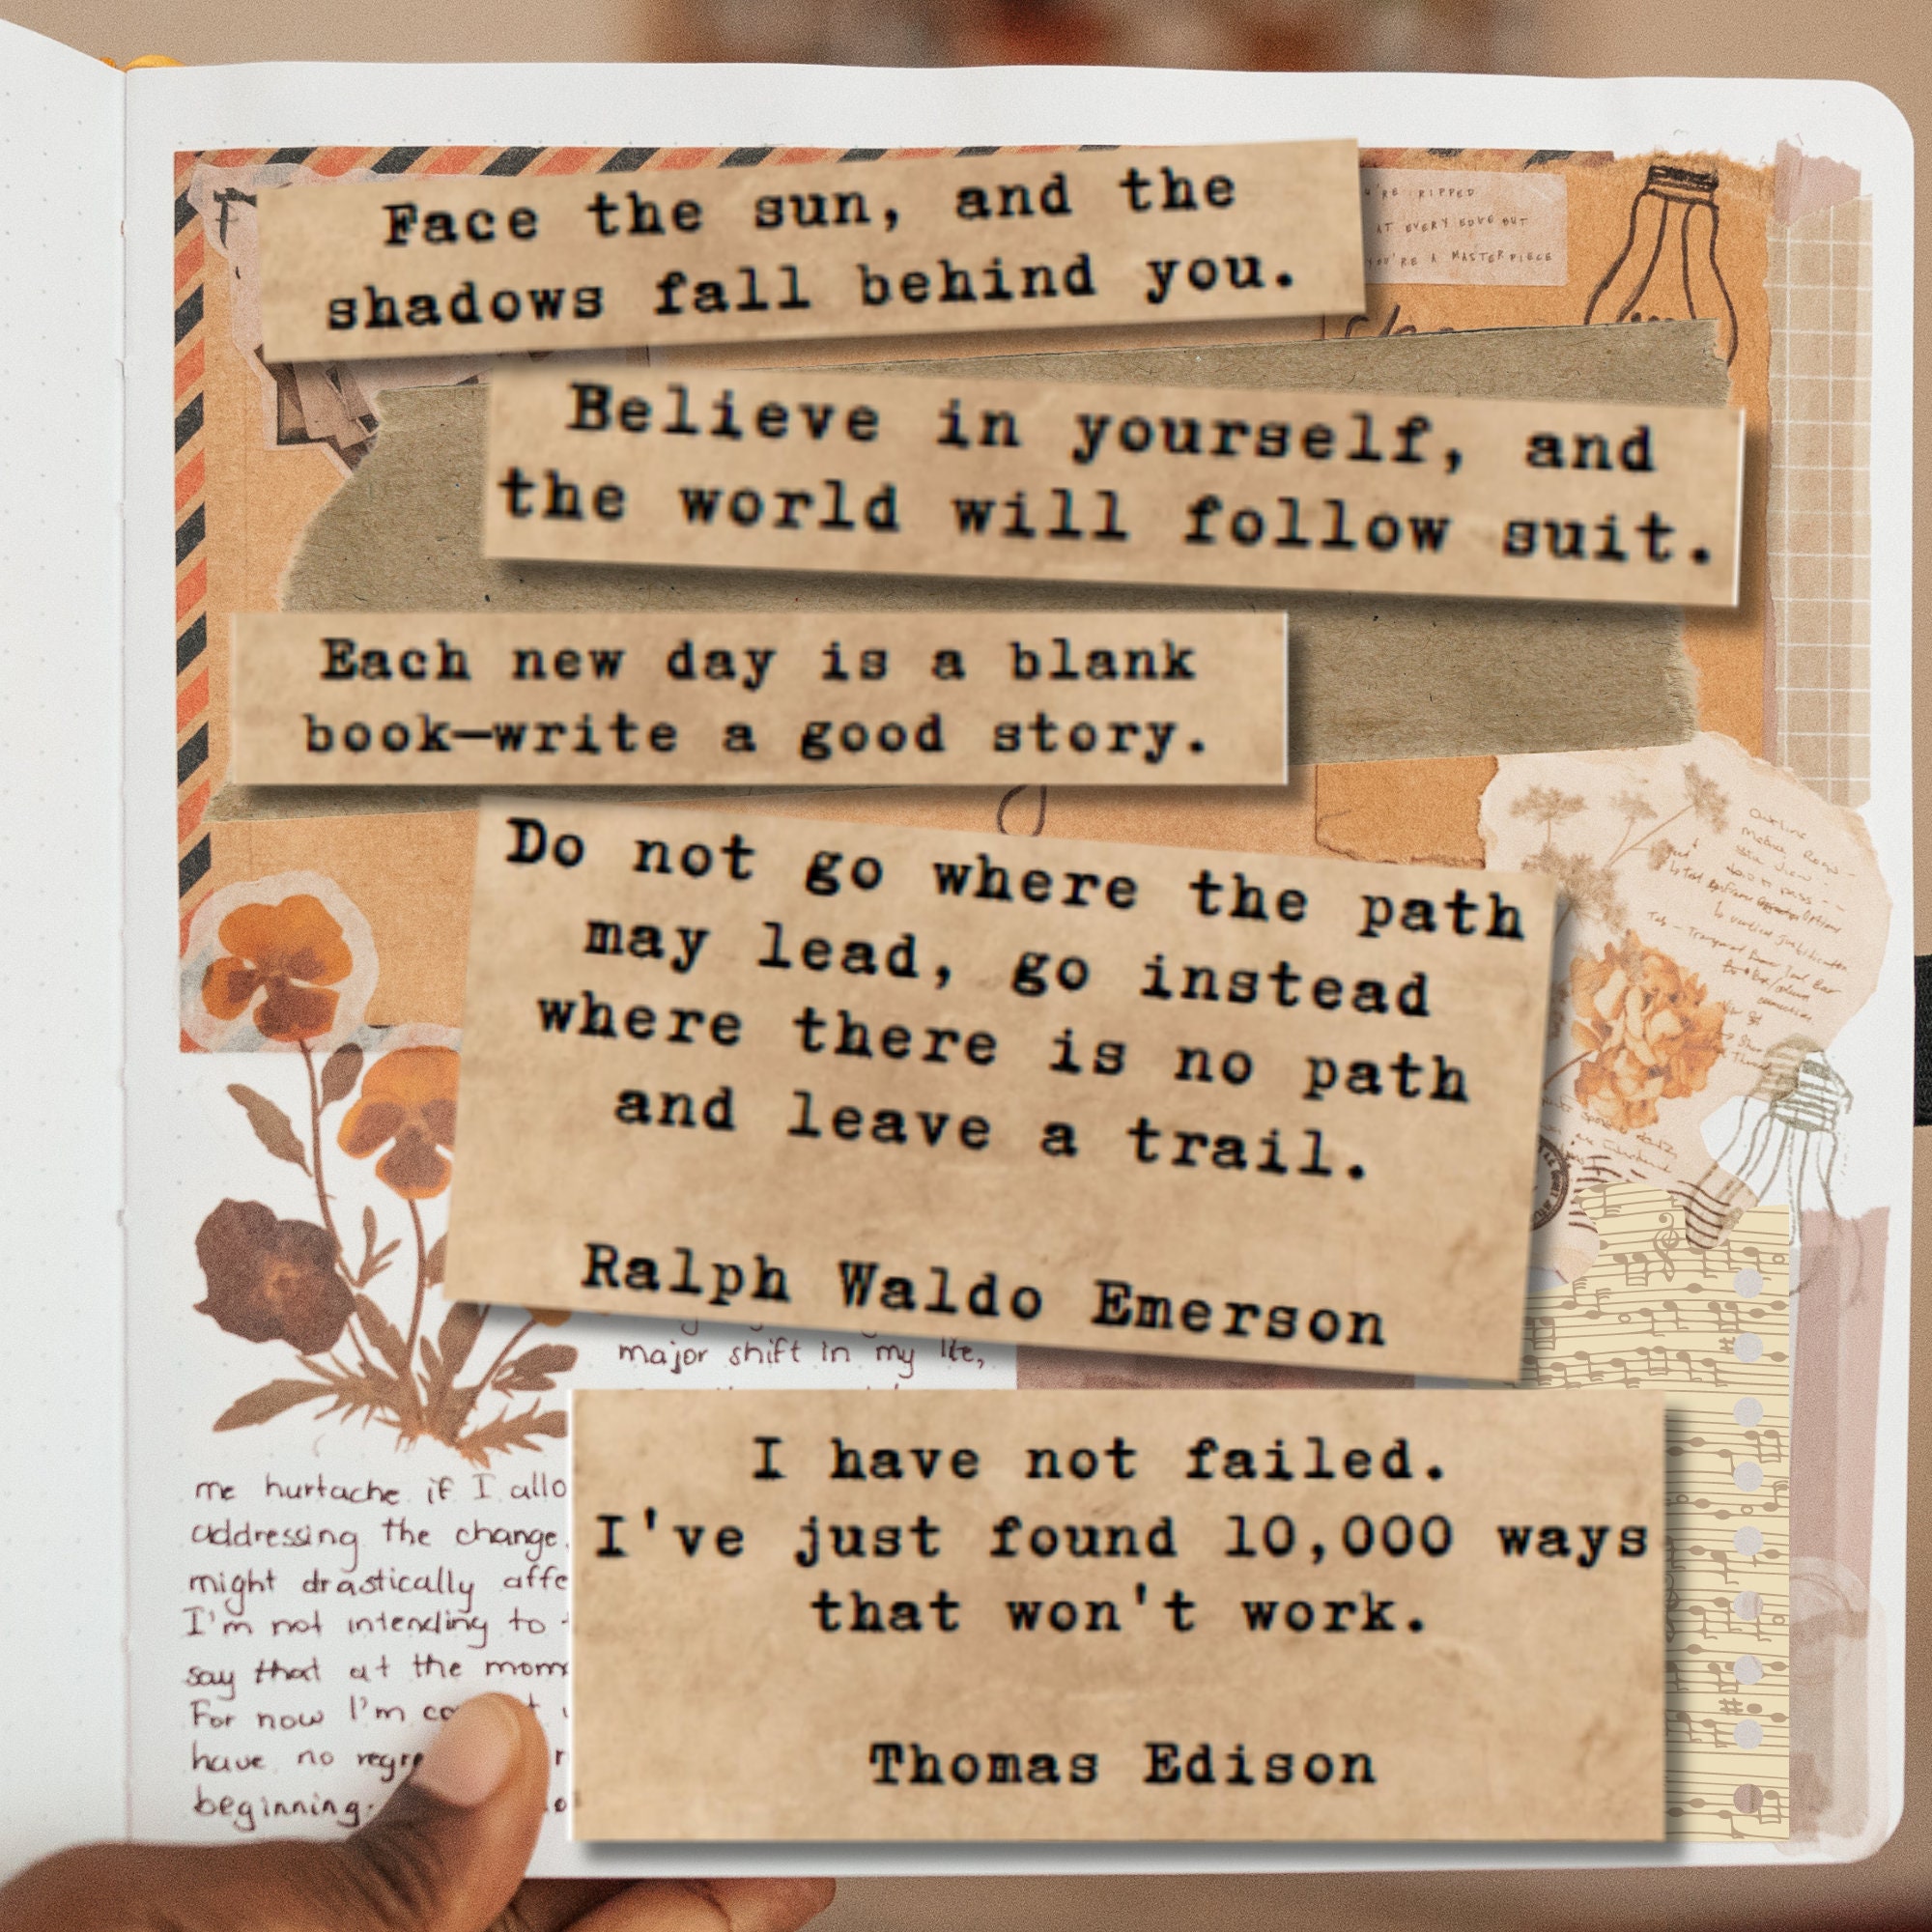 Face the sun, and the
shadows fall behind you.
RIPPED
AT EVERY EDGE BUT
YOU'RE A MASTERPIECE
Believe in yourself, and
the world will follow suit.
Each new day is a blank
book—write a good story.
Do not go where the path
may lead, go instead
where there is no path
and leave a trail.
Ralph Waldo Emerson
major shift in my
I have not failed.
I've just found 10,000 ways
that won't work.
Thomas Edison
me hurtache if I allo
addressing the change.
might drastically affe
I'm not intending to
say that at the mom
For now I'm
have no regre
beginning.